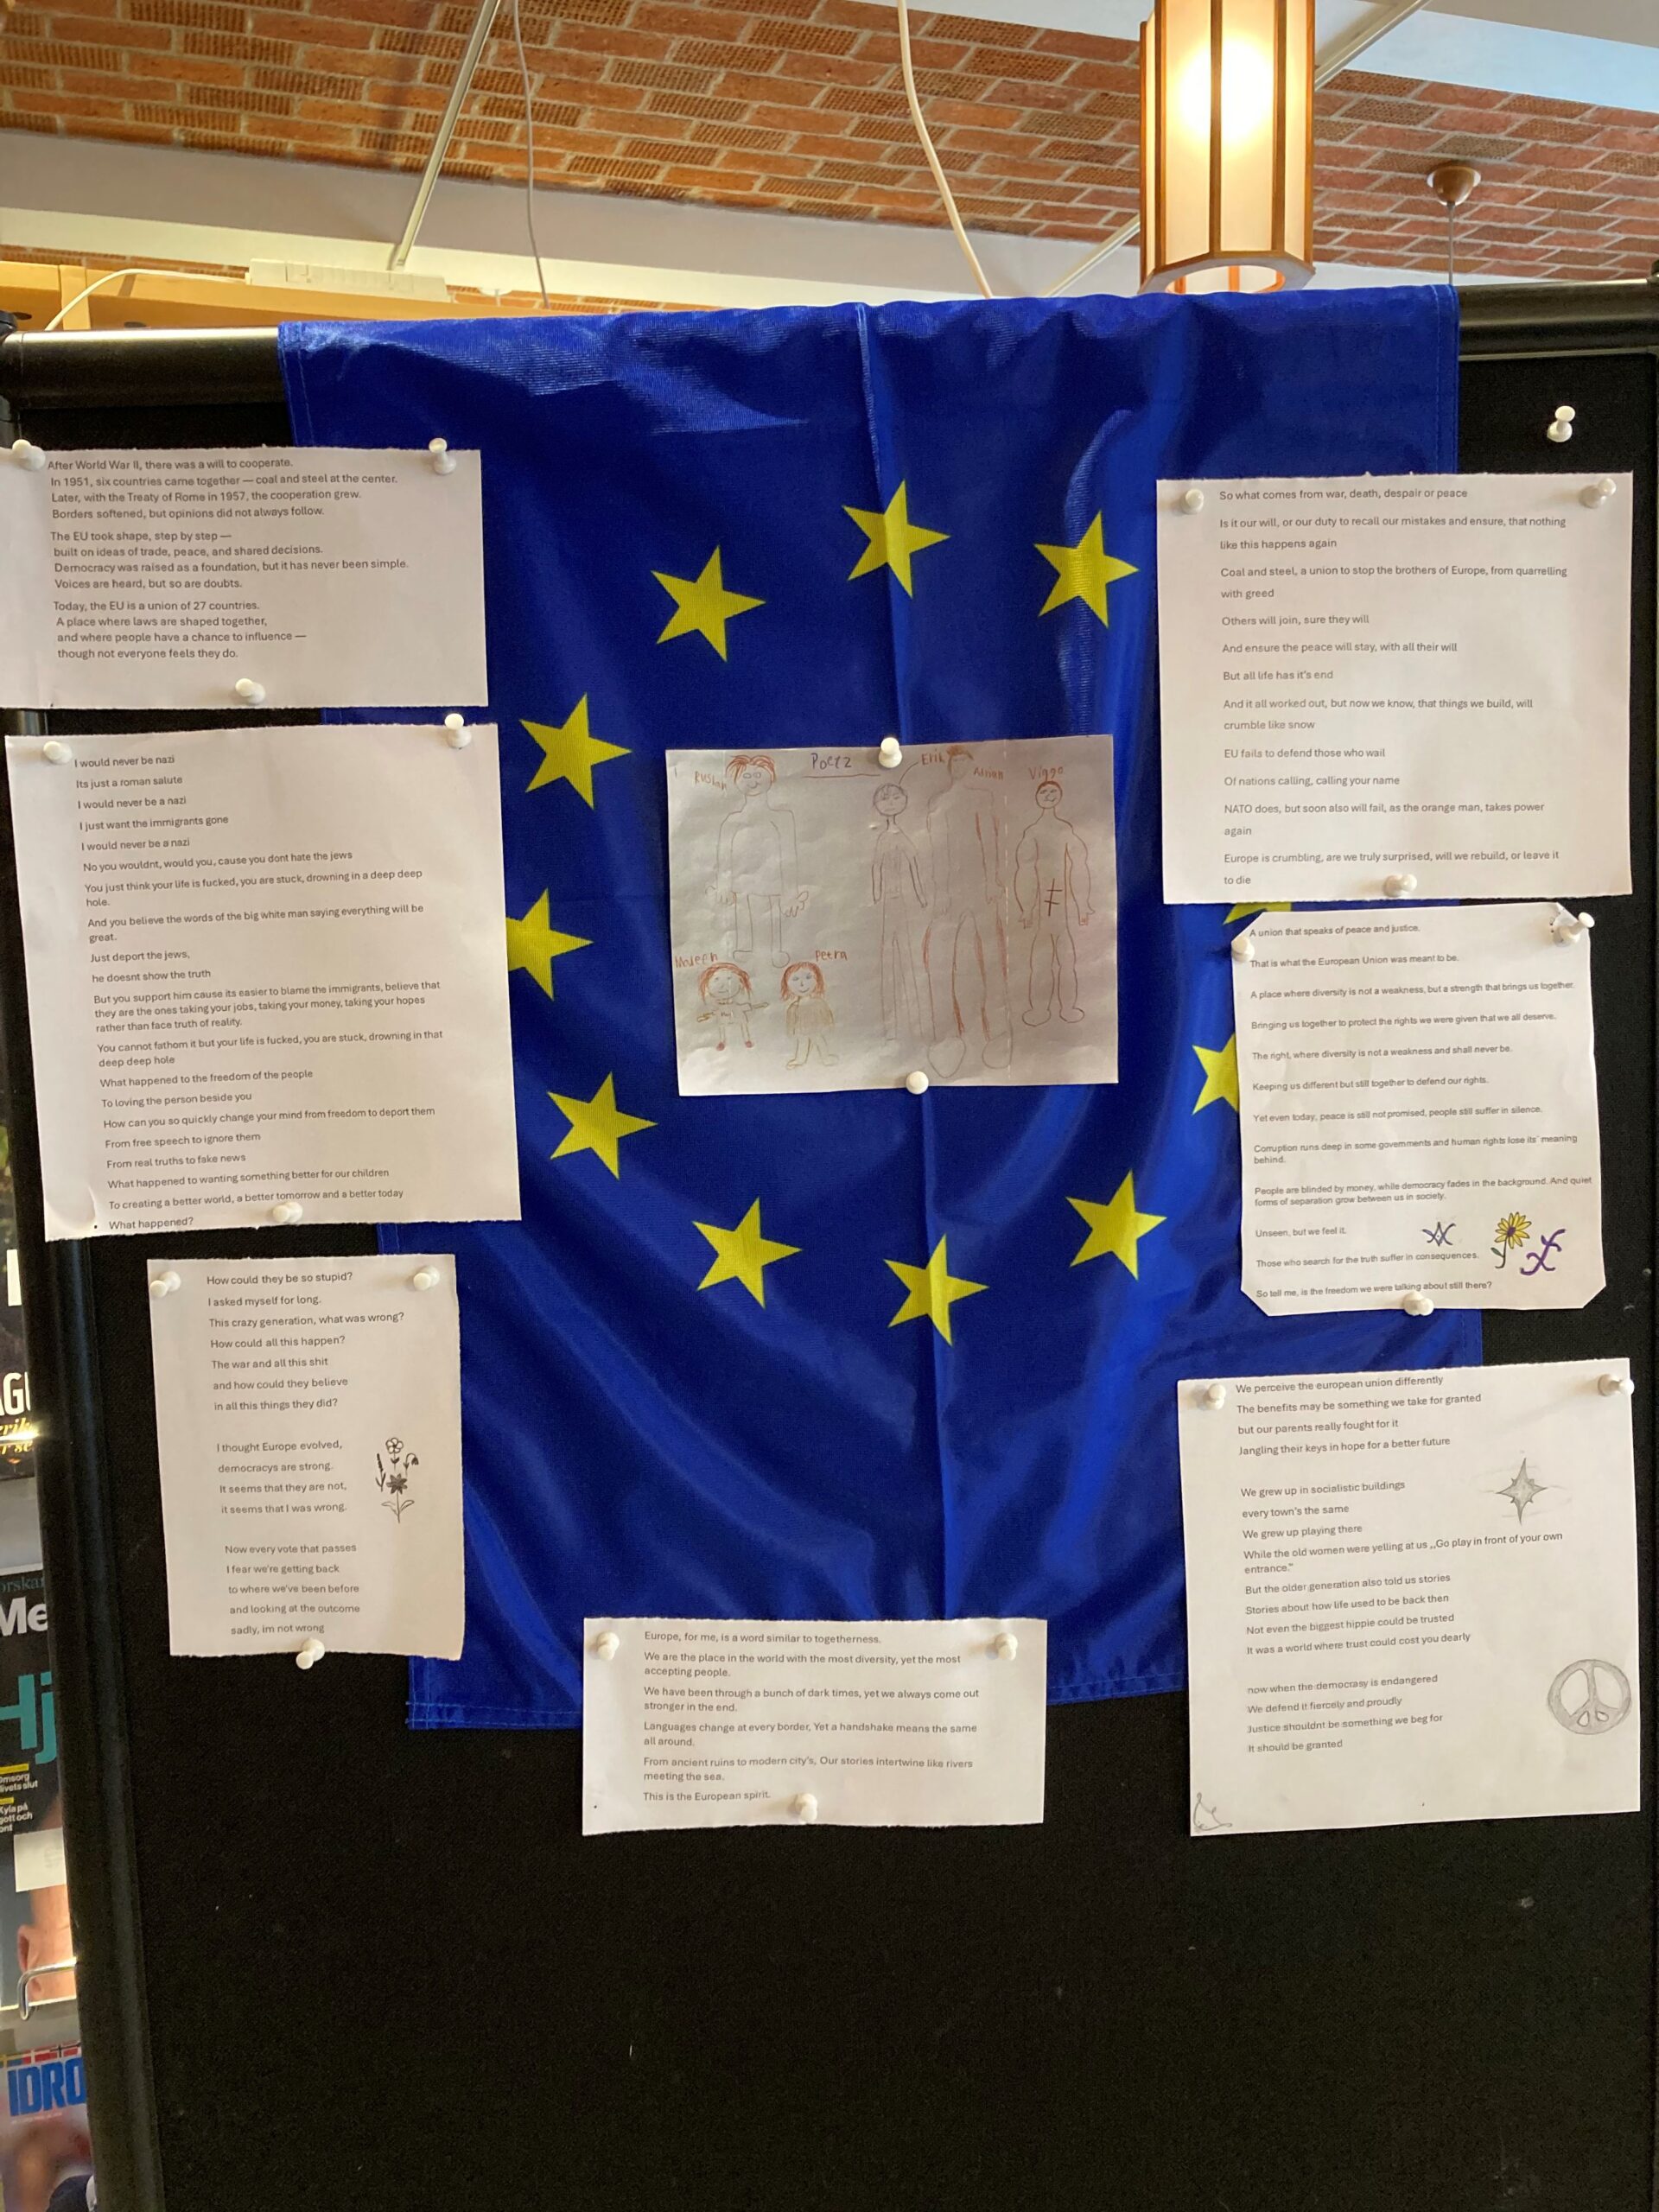 After World War II, there was a will to cooperate.
In 1951, six countries came together — coal and steel at the center.
Later, with the Treaty of Rome in 1957, the cooperation grew.
Borders softened, but opinions did not always follow.
The EU took shape, step by step —
built on ideas of trade, peace, and shared decisions.
Democracy was raised as a foundation, but it has never been simple.
Voices are heard, but so are doubts.
Today, the EU is a union of 27 countries.
A place where laws are shaped together,
and where people have a chance to influence —
though not everyone feels they do.
I would never be nazi
Its just a roman salute
I would never be a nazi
I just want the immigrants gone
I would never be a nazi
No you wouldnt, would you, cause you dont hate the jews
You just think your life is fucked, you are stuck, drowning in a deep deep
hole.
And you believe the words of the big white man saying everything will be
great.
Just deport the jews,
he doesnt show the truth
But you support him cause its easier to blame the immigrants, believe that
they are the ones taking your jobs, taking your money, taking your hopes
rather than face truth of reality.
You cannot fathom it but your life is fucked, you are stuck, drowning in that
deep deep hole
What happened to the freedom of the people
To loving the person beside you
How can you so quickly change your mind from freedom to deport them
From free speech to ignore them
From real truths to fake news
What happened to wanting something better for our children
To creating a better world, a better tomorrow and a better today
What happened?
How could they be so stupid?
I asked myself for long.
This crazy generation, what was wrong?
How could all this happen?
The war and all this shit
and how could they believe
in all this things they did?
I thought Europe evolved,
democracys are strong.
It seems that they are not,
it seems that I was wrong.
Now every vote that passes
I fear we're getting back
to where we've been before
and looking at the outcome
sadly, im not wrong
Poetz
Ruslan
Erik
Adrian
Viggo
Petra
Europe, for me, is a word similar to togetherness.
We are the place in the world with the most diversity, yet the most
accepting people.
We have been through a bunch of dark times, yet we always come out
stronger in the end.
Languages change at every border, Yet a handshake means the same
all around.
From ancient ruins to modern city's, Our stories intertwine like rivers
meeting the sea.
This is the European spirit.
So what comes from war, death, despair or peace
Is it our will, or our duty to recall our mistakes and ensure, that nothing
like this happens again
Coal and steel, a union to stop the brothers of Europe, from quarrelling
with greed
Others will join, sure they will
And ensure the peace will stay, with all their will
But all life has it's end
And it all worked out, but now we know, that things we build, will
crumble like snow
EU fails to defend those who wail
Of nations calling, calling your name
NATO does, but soon also will fail, as the orange man, takes power
again
Europe is crumbling, are we truly surprised, will we rebuild, or leave it
to die
A union that speaks of peace and justice.
That is what the European Union was meant to be.
A place where diversity is not a weakness, but a strength that brings us together.
Bringing us together to protect the rights we were given that we all deserve.
The right, where diversity is not a weakness and shall never be.
Keeping us different but still together to defend our rights.
Yet even today, peace is still not promised, people still suffer in silence.
Corruption runs deep in some governments and human rights lose its' meaning
behind.
People are blinded by money, while democracy fades in the background. And quiet
forms of separation grow between us in society.
Unseen, but we feel it.
Those who search for the truth suffer in consequences.
So tell me, is the freedom we were talking about still there?
We perceive the european union differently
The benefits may be something we take for granted
but our parents really fought for it
Jangling their keys in hope for a better future
We grew up in socialistic buildings
every town's the same
We grew up playing there
While the old women were yelling at us ,,Go play in front of your own
entrance."
But the older generation also told us stories
Stories about how life used to be back then
Not even the biggest hippie could be trusted
It was a world where trust could cost you dearly
now when the democrasy is endangered
We defend it fiercely and proudly
Justice shouldnt be something we beg for
It should be granted
Me
Hj
IDRO